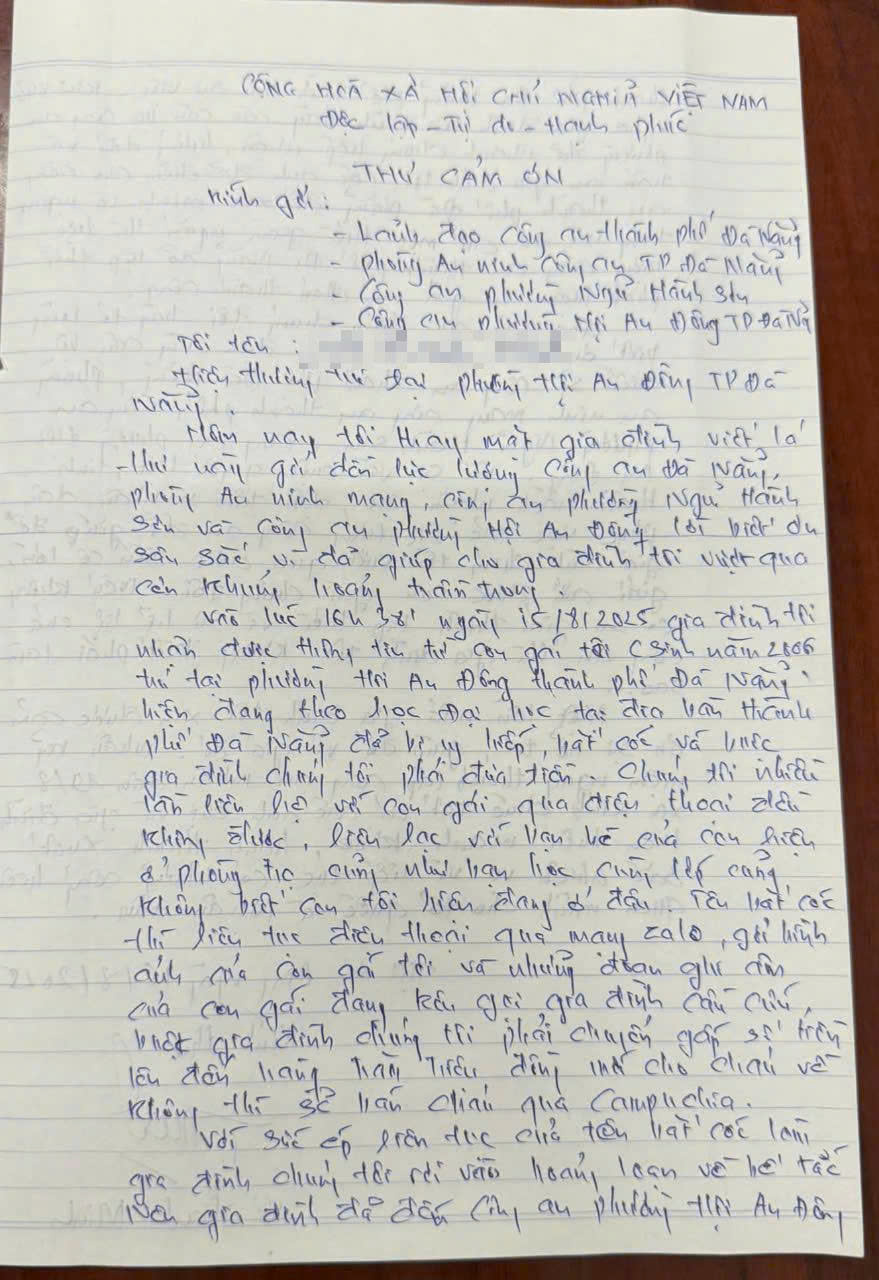 CỘNG HOÀ XÃ HỘI CHỦ NGHĨA VIỆT NAM
Độc lập - Tự do - Hạnh phúc
THƯ CẢM ƠN
Kính gởi :
- Lãnh đạo công an thành phố Đà Nẵng
- phòng An ninh Công an TP Đà Nẵng
- Công an phường Ngũ Hành Sơn
- Công an phường Hội An Đông TP Đà Nẵ
Tôi tên :
Hiện thường trú tại phường Hội An Đông TP Đà
Nẵng.
Hôm nay tôi thay mặt gia đình viết lá
thư này gởi đến lực lượng Công an Đà Nẵng,
phòng An ninh mạng, công an phường Ngũ Hành
Sơn và Công an phường Hội An Đông lời biết ơn
sâu sắc vì đã giúp cho gia đình tôi vượt qua
cơn khủng hoảng trầm trọng.
Vào lúc 16h 38' ngày 15/8/2025 gia đình tôi
nhận được thông tin từ con gái tôi (sinh năm 2006
trú tại phường Hội An Đông thành phố Đà Nẵng
hiện đang theo học Đại học tại địa bàn thành
phố Đà Nẵng đã bị uy hiếp, bắt cóc và buộc
gia đình chúng tôi phải đưa tiền. Chúng tôi nhiều
lần liên hệ với con gái qua điện thoại đều
không được, liên lạc với bạn bè của con hiện
ở phòng trọ cũng như bạn học cùng lớp cũng
không biết con tôi hiện đang ở đâu. Tên bắt cóc
thì liên tục điện thoại qua mạng zalo, gởi hình
ảnh của con gái tôi và những đoạn ghi âm
của con gái đang kêu gọi gia đình cầu cứu,
buộc gia đình chúng tôi phải chuyển gấp số tiền
lên đến hàng trăm triệu đồng mới cho cháu về
không thì sẽ bán cháu qua Campuchia.
Với sức ép liên tục của tên bắt cóc làm
gia đình chúng tôi rơi vào hoảng loạn và bế tắc
Nên gia đình đã đến Công an phường Hội An Đông